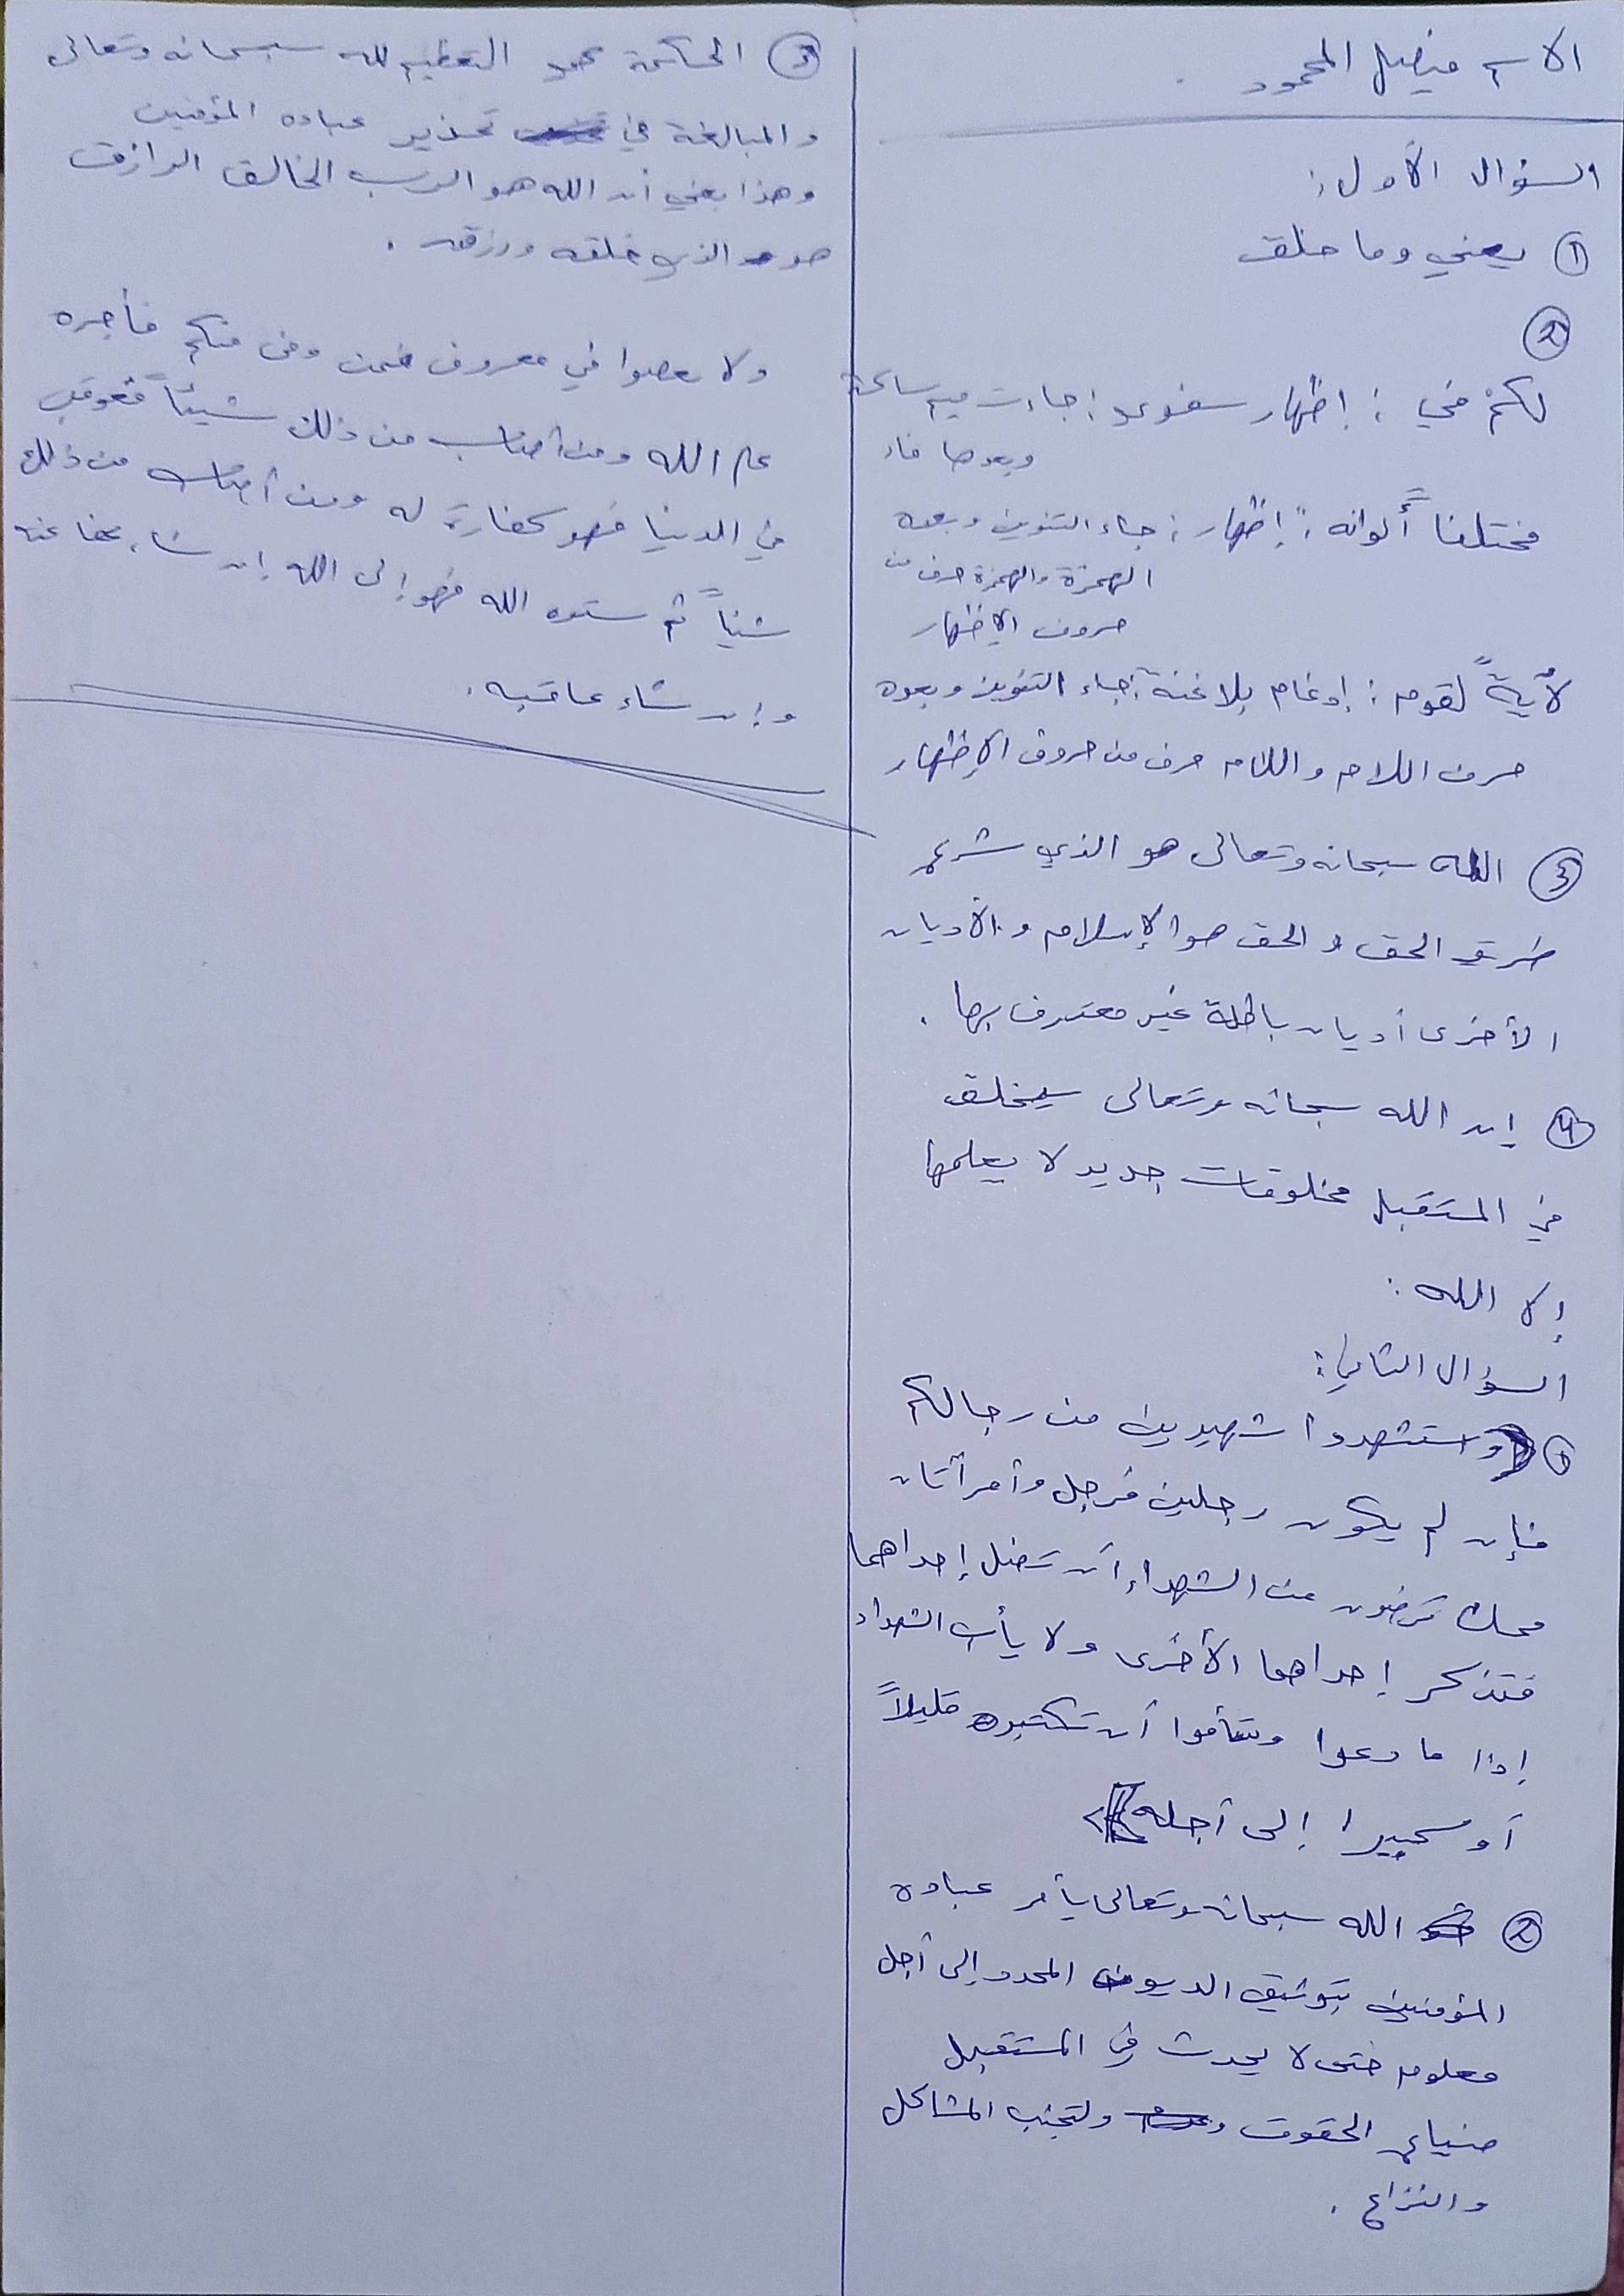 الاسم فيصل المحمود
السؤال الأول:
① يعني وما خلق
②
لكم في : إظهار سفوي : جاءت ميم ساكنة
وبعدها فاء
مختلفاً ألوانه : إظهار : جاء التنوين وبعده
الهمزة والهمزة حرف من
حروف الإظهار
لآيةً لقوم : إدغام بلا غنة : جاء التنوين وبعده
حرف اللام واللام حرف من حروف الإظهار
③ الله سبحانه وتعالى هو الذي شرع
طرق الحق والحق هو الإسلام والأديان
الأخرى أديان باطلة غير معترف بها .
④ إن الله سبحانه وتعالى سيخلق
في المستقبل مخلوقات جديد لا يعلمها
إلا الله :
السؤال الثاني:
① واستشهدوا شهيدين من رجالكم
فإن لم يكون رجلين فرجل وأمرأتان
ممن ترضون من الشهداء أن تضل إحداهما
فتذكر إحداهما الأخرى ولا يأب الشهداء
إذا ما دعوا وتسأموا أن تكتبوه قليلاً
أو كبيرا إلى أجله
② الله سبحانه وتعالى يأمر عباده
المؤمنين بتوثيق الديون المحدد إلى أجل
معلوم حتى لا يحدث في المستقبل
ضياع الحقوق ولتجنب المشاكل
والنزاع .
③ الحكمة التعظيم لله سبحانه وتعالى
والمبالغة في تحذير عباده المؤمنين
وهذا يعني أن الله هو الرب الخالق الرازق
هو الذي خلقه ورزقه .
ولا تعصوا في معروف فمن وفى منكم فأجره
على الله ومن أصاب من ذلك شيئاً فعوقب
في الدنيا فهو كفارة له ومن أصاب من ذلك
شيئاً ثم ستره الله فهو إلى الله إن شاء عفا عنه
وإن شاء عاقبه .